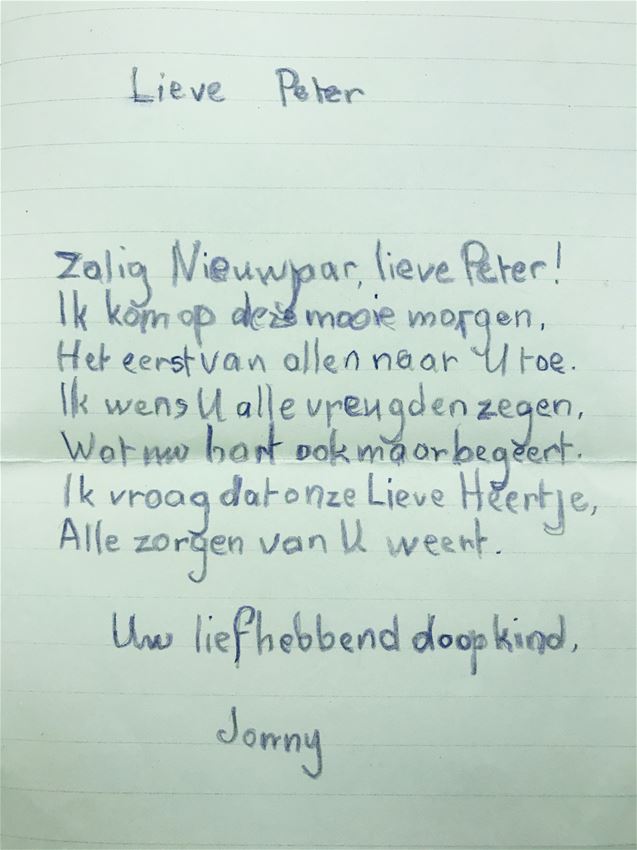 Lieve Peter
Zalig Nieuwjaar, lieve Peter!
Ik kom op deze mooie morgen,
Het eerst van allen naar U toe.
Ik wens U alle vreugd en zegen,
Wat uw hart ook maar begeert.
Ik vraag dat onze Lieve Heertje,
Alle zorgen van U weert.
Uw liefhebbend doopkind,
Jonny